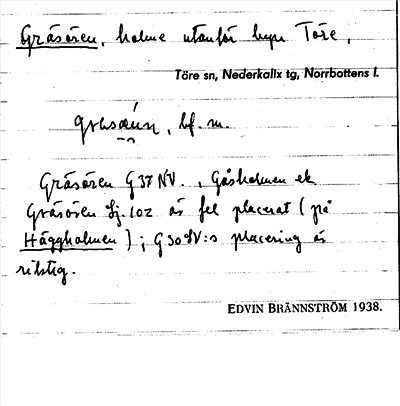 Gräsören, holme utanför byn Töre,
Töre sn, Nederkalix tg, Norrbottens l.
bf. m.
Gräsören G37NV., Gåsholmen ek
Gräsören Sj. 102 är fel placerat (på
Häggholmen); G30NV:s placering är
riktig.
EDVIN BRÄNNSTRÖM 1938.